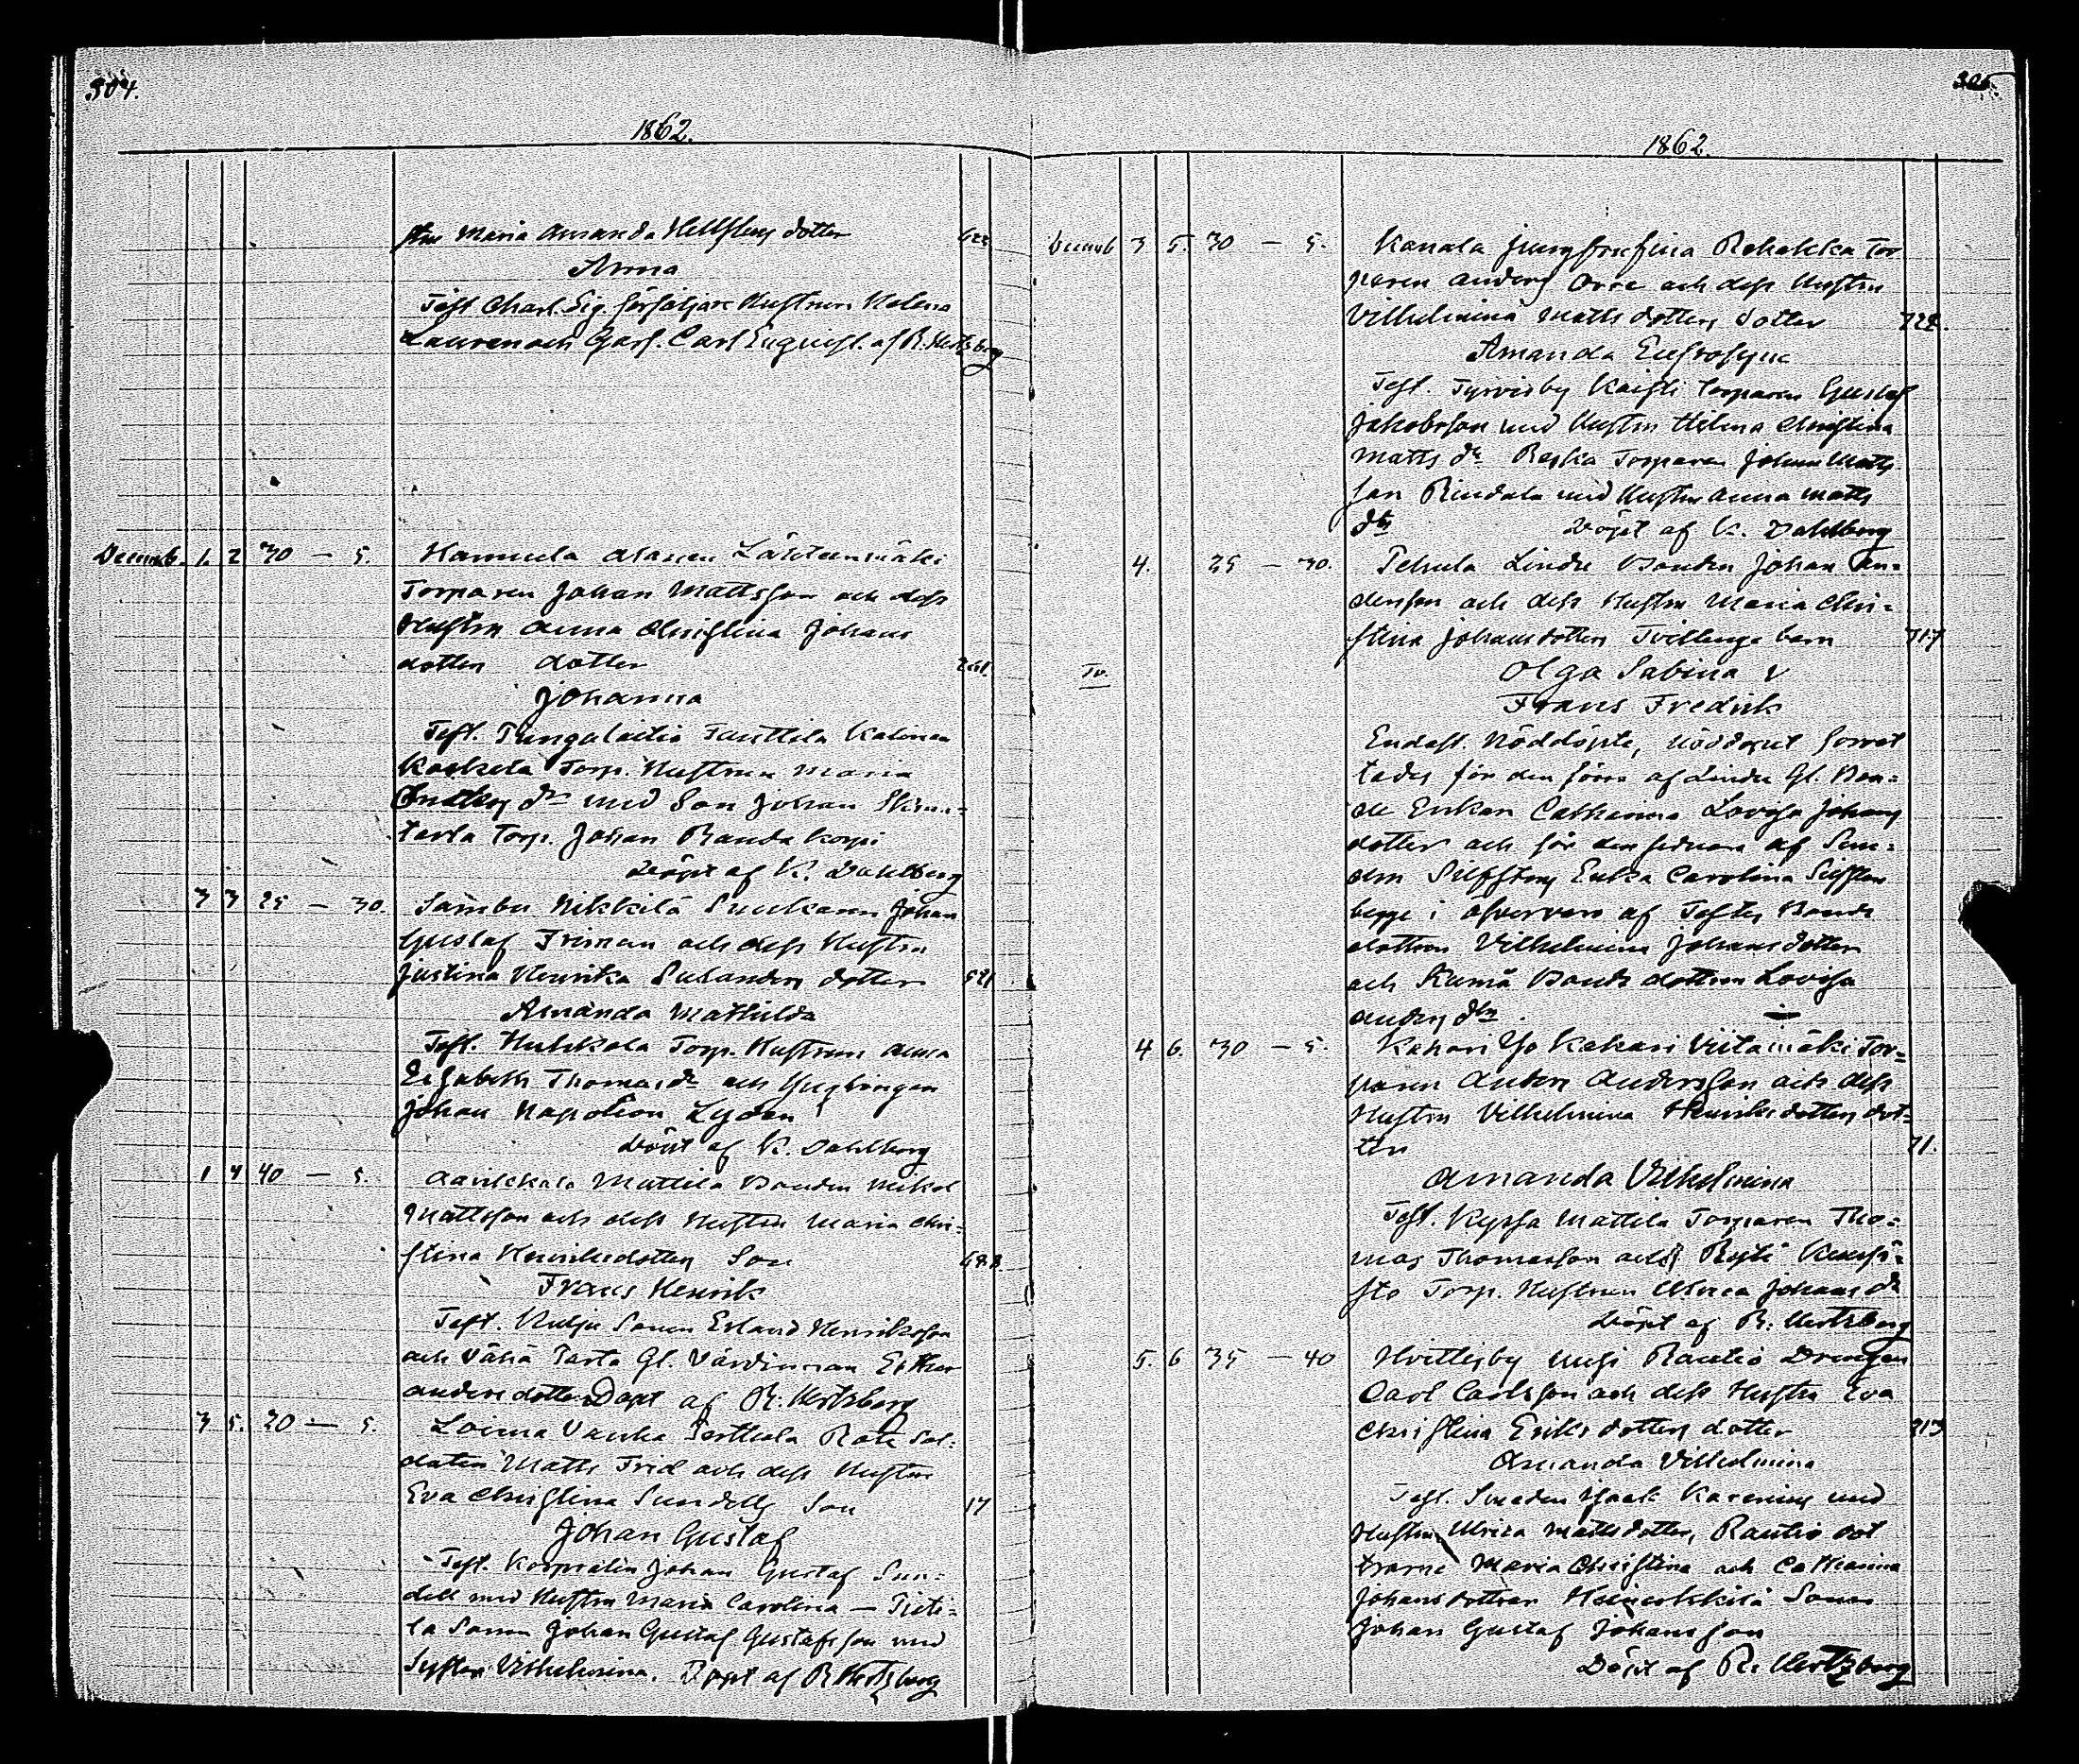 304.
1862.
Maria Amanda Hellstens dotter 622
Anna
Test. Charl. Sig. Hustrun Helena
och Carl Enqvist. af R. Hertzberg
Decemb. 1. 2 30 — 5. Kannula Alanen Lähteenmäki
Torparen Johan Mattsson och dess
Hustru Anna Christina Johans
dotters dotter 261.
Johanna
Test. Pungalaitio Tanttila
Torp. Hustrun Maria
dr med Son Johan
Torp. Johan Randa korpi
Döpt af K. Dahlberg
3 3 25 — 30. Sambu Nikkilä Johan
Gustaf Friman och dess Hustru
Justina Henrika Sulanders dotter 521
Amanda Mathilda
Test. Huhkola Torp. Hustrun Anna
Elisabeth Thomas dr och Ynglingen
Johan Napoleon Lyden
Döpt af K. Dahlberg
1 4 40 — 5. Mattila Bonden Mikel
Mattsson och dess Hustru Maria Chri-
stina Henriksdotters Son 688.
Frans Henrik
Test. Kulju Sonen Erland Henriksson
och Vähä Parta Gl. Värdinnan Esther
Andersdotter Döpt af R. Hertzberg
3 5. 30 — 5. Loima Vanha Perttula Rote Sol-
daten Matts Frid och dess Hustru
Eva Christina Sundells Son 17
Johan Gustaf
Test. Korpralen Johan Gustaf Sun-
dell med Hustru Maria Carolina — Pieti-
la Sonen Johan Gustaf Gustafsson med
Syster Vilhelmina. Döpt af R. Hertzberg
305.
1862.
Decemb 3 5. 30 — 5. Kanala Rebekka Tor
paren Anders Orre och dess Hustru
Vilhelmina Matts dotters dotter 728.
Amanda Eufrosyne
Test. Tyrvisby Kaisti Torparen Gustaf
Jakobsson med Hustru Helena Christina
Matts dr Torparen Johan Matts
son Rindala med Hustru Anna Matts
dr Döpt af K. Dahlberg
4. 25 — 30. Peltula Lindu Bonden Johan An-
dersson och dess Hustru Maria Chri-
stina Johansdotters Tvillinge barn 717
Tv. Olga Sabina &
Frans Fredrik
Endast. Nöddöpte, nöddopet förret
tades för den förra af Lindu Gl. Bon-
de Enkan Catharina Lovisa Johans
dotter och för den sednare af
Enka Carolina
begge i öfvervaro af Testes Bonde
dottren Vilhelmina Johansdotter
och Bonde dottren Lovisa
Anders dtr.
4 6. 30 — 5. Kahari Yso Kahari Viitamäki Tor-
paren Anders Andersson och dess
Hustru Vilhelmina Henriksdotters dot-
ter 71.
Amanda Vilhelmina
Test. Kyssa Mattila Torparen Tho-
mas Thomasson och
sto Torp. Hustrun Ulrica Johans dr
Döpt af R. Hertzberg
5. 6 35 — 40 Hvittisby Uusi Rautio Drengen
Carl Carlsson och dess Hustru Eva
Christina Eriks dotters dotter 713
Amanda Vilhelmina
Test. Smeden Isaak Karenius med
Hustru Ulrica Mattsdotter, Rautio dot
trarne Maria Christina och Catharina
Johans döttrar Heinikkilä Sonen
Johan Gustaf Johansson
Döpt af R. Hertzberg